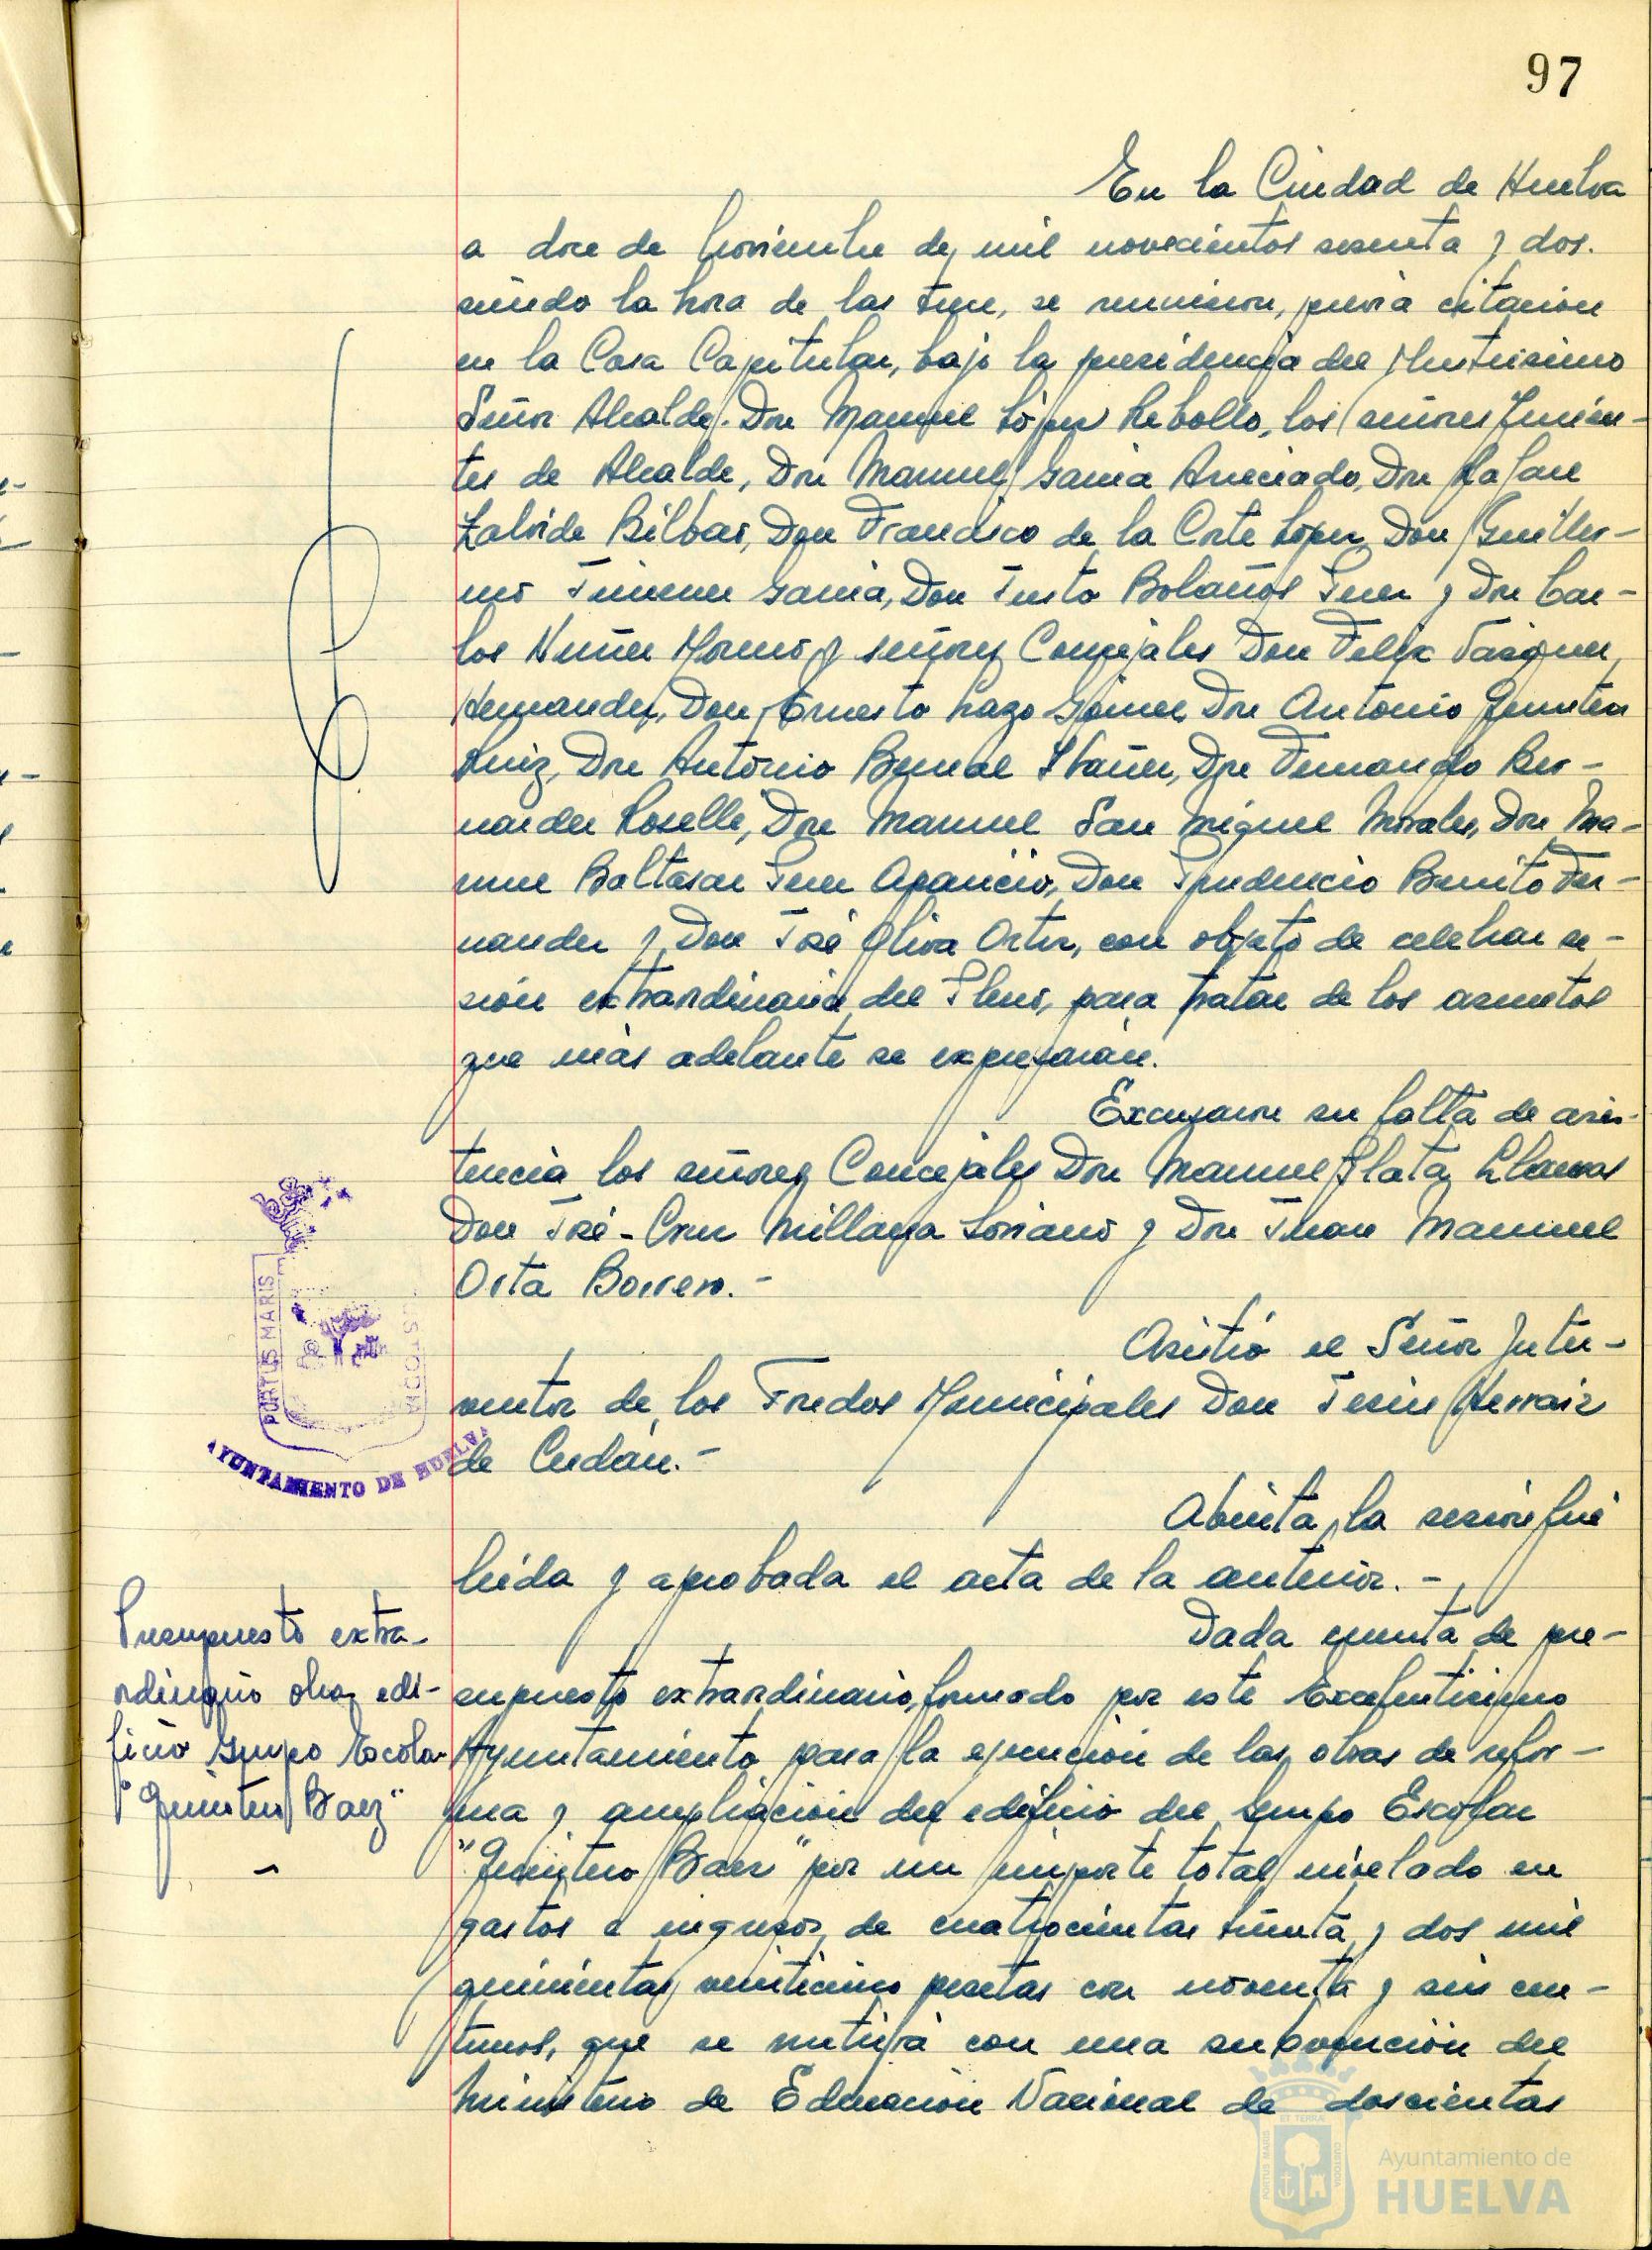 97
En la Ciudad de Huelva
a doce de Noviembre de mil novecientos sesenta y dos.
siendo la hora de las trece, se reunieron, previa citación
en la Casa Capitular, bajo la presidencia del Ilustrísimo
Señor Alcalde. Don Manuel López Rebollo, los señores Tenien-
tes de Alcalde, Don Manuel García Anreciado, Don Rafael
Zalvide Bilbao, Don Francisco de la Corte López, Don Guiller-
mo Jimenez García, Don Justo Bolaños Perez y Don Car-
los Nuñez Moreno y señores Concejales Don Felix Vazquez
Hernandez, Don Ernesto Lazo Gómez, Don Antonio Quintero
Ruiz, Don Antonio Bernal Ibañez, Don Fernando Ber-
nardez Roselle, Don Manuel San Miguel Morales, Don Ma-
nuel Baltasar Perez Aparicio, Don Prudencio Benito Fer-
nandez y Don José Oliva Ortiz, con objeto de celebrar se-
sión extraordinaria del Pleno, para tratar de los asuntos
que más adelante se expresarán.
Excusaron su falta de asis-
tencia los señores Concejales Don Manuel Plata Llamas
Don José-Cruz Millaga Soriano y Don Juan Manuel
Orta Borrero.-
Asistió el Señor Inter-
ventor de los Fondos Municipales Don Jesús Herraiz
de
PORTUS MARIS
CUSTODIA
AYUNTAMIENTO DE HUELVA
Abierta la sesión fué
leida y aprobada el acta de la anterior.-
Presupuesto extra-
ordinario obras edi-
ficio Grupo Escolar
"Quintero Baez"
Dada cuenta de pre-
supuesto extraordinario, formado por este Excelentísimo
Ayuntamiento para la ejecución de las obras de refor-
ma y ampliación del edificio del Grupo Escolar
"Quintero Baez" por un importe total nivelado en
gastos e ingresos, de cuatrocientas treinta y dos mil
quinientas veinticinco pesetas con noventa y seis cen-
timos, que se nutrirá con una subvención del
Ministerio de Educación Nacional de doscientas
ET TERRAE
PORTUS MARIS
CUSTODIA
Ayuntamiento de
HUELVA